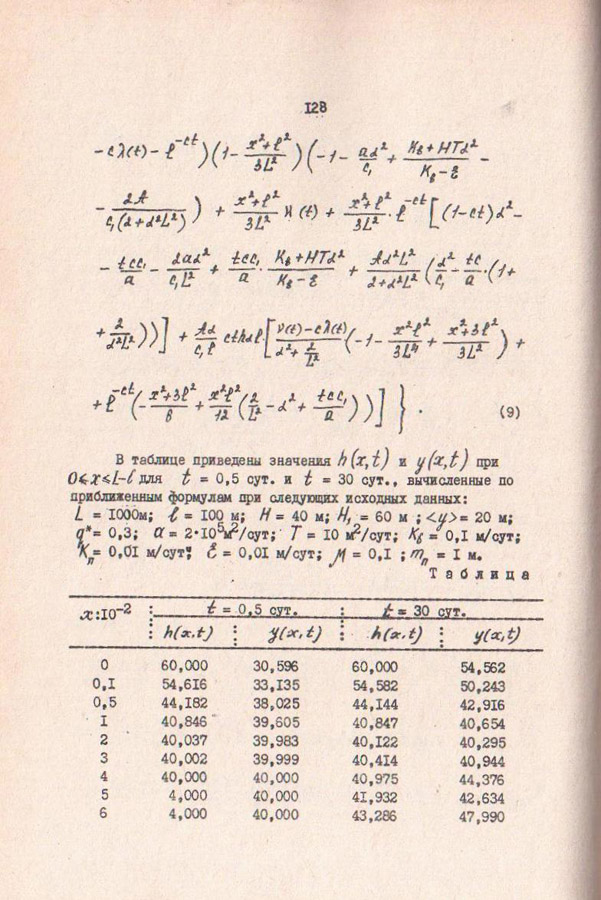 128
-cλ(t) - ℓ^{-ct})(1 - (x²+ℓ²)/(3L²))(-1 - aα²/c₁ + (K_в+HTα²)/(K_в-ε) -
- 2A/(c₁(2+α²L²))) + (x²+ℓ²)/(3L²) ϰ(t) + (x²+ℓ²)/(3L²)·ℓ^{-ct}[(1-ct)α² -
- tcc₁/a - 2aα²/(c₁L²) + tcc₁/a · (K_в+HTα²)/(K_в-ε) + Aα²L²/(2+α²L²) (α²/c₁ - tc/a ·(1+
+ 2/(α²L²)))] + Aα/(c₁ℓ) cthαℓ[(ν(t)-cλ(t))/(α²+2/L²) (-1 - x²ℓ²/(3L⁴) + (x²+3ℓ²)/(3L²)) +
+ ℓ^{-ct}(-(x²+3ℓ²)/6 + x²ℓ²/12 (2/L² - α² + tcc₁/a))]}. (9)
В таблице приведены значения h(x,t) и y(x,t) при
0≤x≤L-ℓ для t = 0,5 сут. и t = 30 сут., вычисленные по
приближенным формулам при следующих исходных данных:
L = 1000м; ℓ = 100 м; H = 40 м; H₁ = 60 м ; <y> = 20 м;
q* = 0,3; a = 2·10⁵м²/сут; T = 10 м²/сут; K_в = 0,1 м/сут;
K_п = 0,01 м/сут; ε = 0,01 м/сут; μ = 0,1 ; m_п = 1 м.
Таблица
x:10⁻² : t = 0,5 сут. : t = 30 сут.
: h(x,t) : y(x,t) : h(x,t) : y(x,t)
0 60,000 30,596 60,000 54,562
0,1 54,616 33,135 54,582 50,243
0,5 44,182 38,025 44,144 42,916
1 40,846 39,605 40,847 40,654
2 40,037 39,983 40,122 40,295
3 40,002 39,999 40,414 40,944
4 40,000 40,000 40,975 44,376
5 4,000 40,000 41,932 42,634
6 4,000 40,000 43,286 47,990